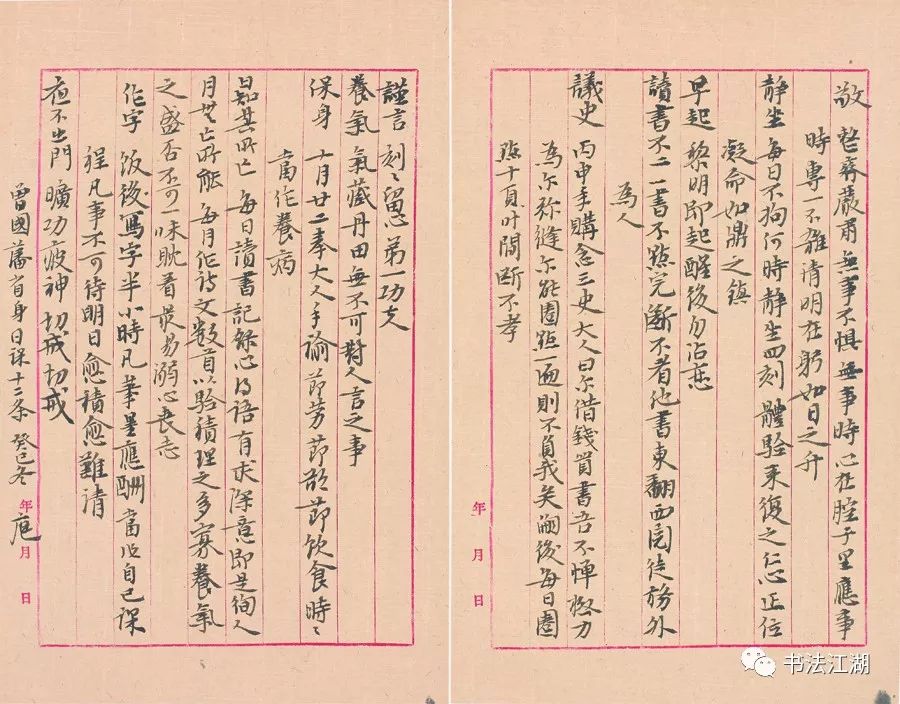 敬 整齋嚴肅無事不懼無事時心在腔子里應事
時專一不雜清明在躬如日之升
静坐 每日不拘何時静坐四刻體驗来復之仁心正位
凝命如鼎之鎮
早起 黎明即起醒後勿沾恋
讀書不二 一書不點完斷不看他書東翻西閱徒務外
為人
讀史 丙申年購念三史大人曰尔借錢買書吾不惮極力
為尔弥縫尔能圈點一遍則不負我矣嗣後每日圈
點十頁叶間斷不孝
年 月 日
謹言 刻々留心第一功夫
養氣 氣藏丹田無不可對人言之事
保身 十月廿二奉大人手諭節劳節欲節飲食時々
當作養病
日知其所亡 每日讀書記錄心得語有求深意即是徇人
月無亡所能 每月作詩文數首以驗積理之多寡養氣
之盛否不可一味耽着最易溺心丧志
作字 飯後寫字半小時凡筆墨應酬當作自己課
程凡事不可待明日愈積愈難清
夜不出門 曠功疲神切戒切戒
曾國藩省身日课十二条 癸巳冬
年 月 日
书法江湖